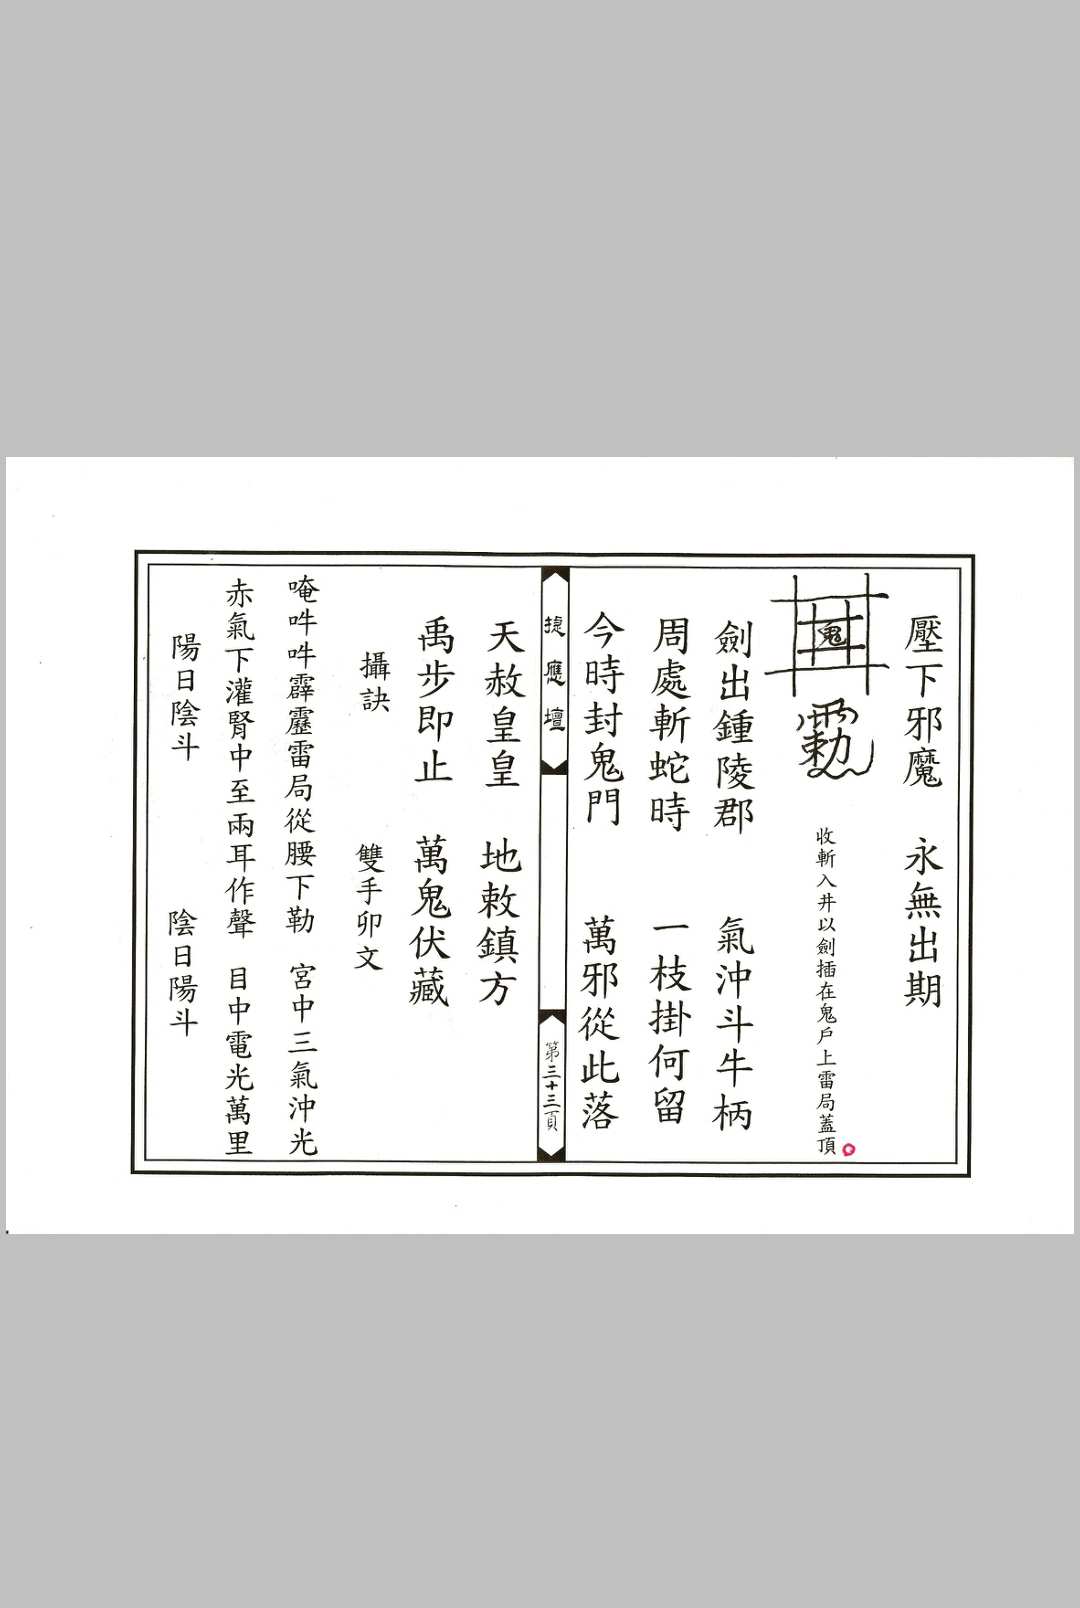 壓下邪魔　永無出期
鬼
收斬入井以劍插在鬼戶上雷局蓋頂
劍出鍾陵郡　氣沖斗牛柄
周處斬蛇時　一枝掛何留
今時封鬼門　萬邪從此落
捷應壇
第三十三頁
天赦皇皇　地敕鎮方
禹步即止　萬鬼伏藏
攝訣　雙手卯文
唵吽吽霹靂雷局從腰下勒　宮中三氣沖光
赤氣下灌腎中至兩耳作聲　目中電光萬里
陽日陰斗　陰日陽斗